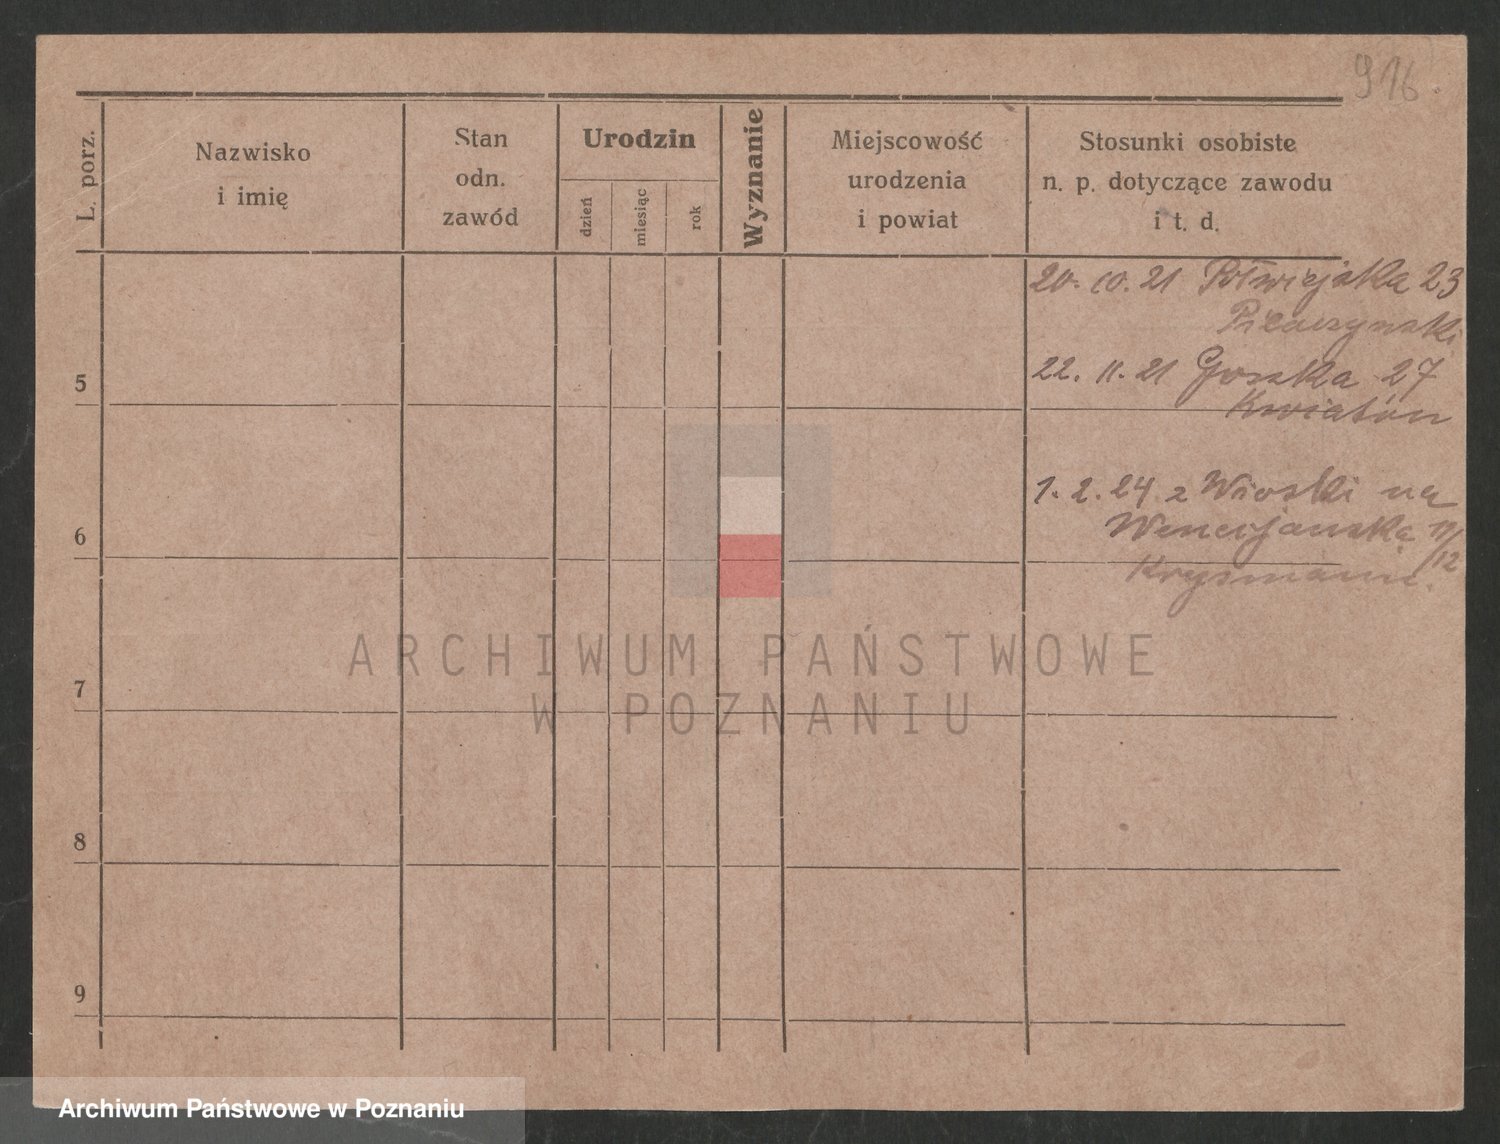 916
L. porz.
Nazwisko
i imię
Stan
odn.
zawód
Urodzin
dzień
miesiąc
rok
Wyznanie
Miejscowość
urodzenia
i powiat
Stosunki osobiste
n. p. dotyczące zawodu
i t. d.
20. 10. 21 Półwiejska 23
22. 11. 21 Gorska 27
1. 2. 24 z Wioski na
Wenecjańska 11/12
5
6
7
8
9
ARCHIWUM PAŃSTWOWE
W POZNANIU
Archiwum Państwowe w Poznaniu